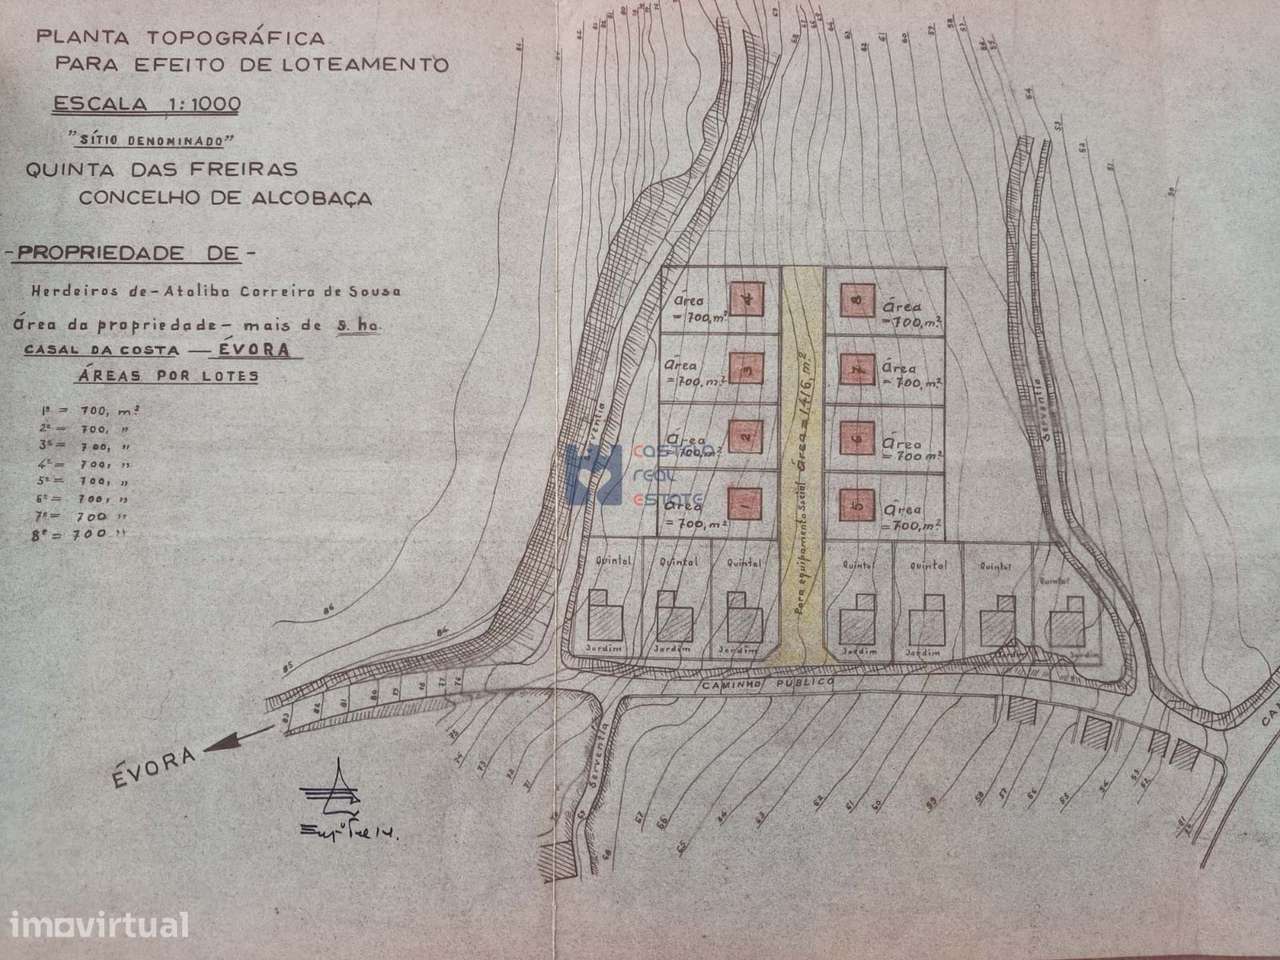 PLANTA TOPOGRÁFICA
PARA EFEITO DE LOTEAMENTO
ESCALA 1:1000
"SÍTIO DENOMINADO"
QUINTA DAS FREIRAS
CONCELHO DE ALCOBAÇA
-PROPRIEDADE DE-
Herdeiros de - Ataliba Correira de Sousa
Área da propriedade - mais de 5. ha.
CASAL DA COSTA — ÉVORA
ÁREAS POR LOTES
1º = 700, m.²
2º = 700, "
3º = 700, "
4º = 700, "
5º = 700, "
6º = 700, "
7º = 700 "
8º = 700 "
Área = 700, m² 4
8 Área = 700, m²
Área = 700, m² 3
7 Área = 700, m²
Área = 700, m² 2
6 Área = 700 m²
Área = 700, m² 1
5 Área = 700, m²
Para equipamento Social Área = 1.416, m.²
Serventia
Serventia
CASTELO
REAL
ESTATE
Quintal Quintal Quintal Quintal Quintal Quintal Quintal
Jardim Jardim Jardim Jardim Jardim Jardim Jardim
CAMINHO PÚBLICO
Serventia
ÉVORA
86
85
84
83 82 81 80 79 78 77 76
75
74
73
72
71
70
69
68
67
66
65
64
63
62
61
60
59
58
57
56
55
54
53
52
51
CA
imovirtual